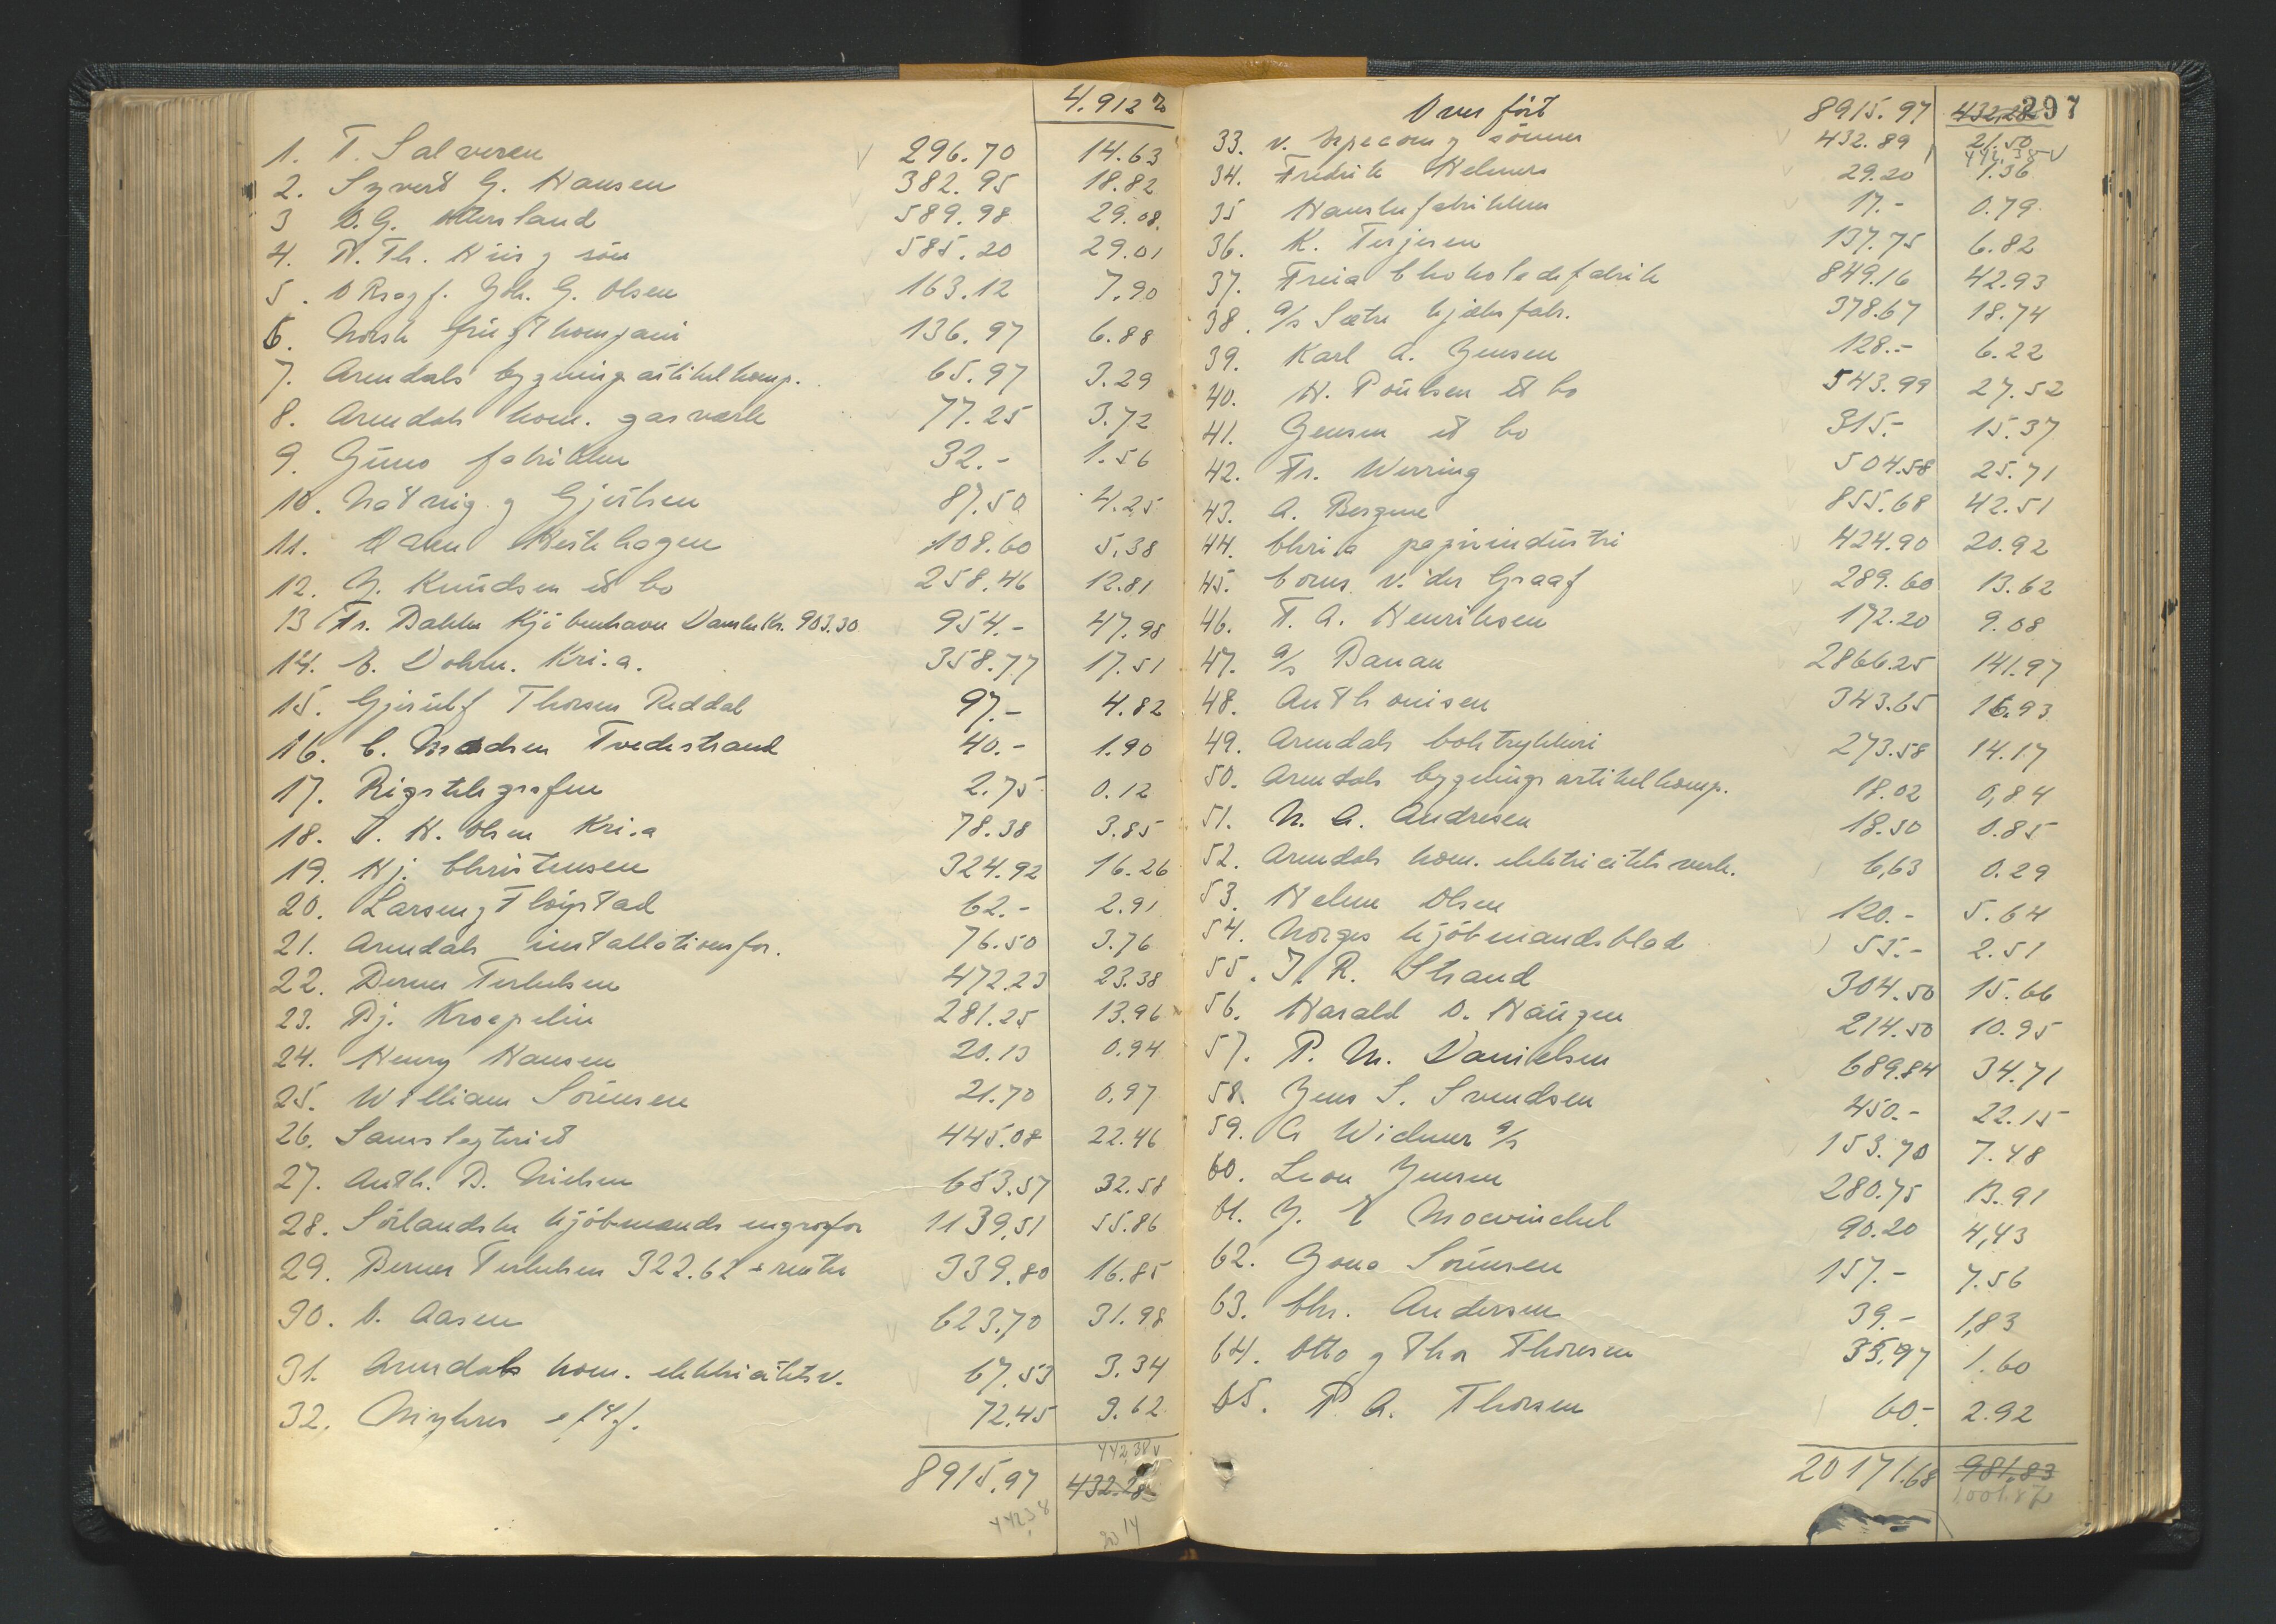 4.912 %
1. T. Salvesen 296.70 14.63
2. Syvert G. Hansen 382.95 18.82
3 O.G. Ottersland 589.98 29.08.
4. N. Th. Kiis g søn 585.20 29.01
5. ORsagf. Joh. G. Olsen 163.12 7.90
6. Norsk frügtkompani 136.97 6.88
7. Arendals bygningsartikelkomp. 65.97 3.29
8. Arendals kom. gasværk 77.25 3.72
9. Juno fabrikken 32.- 1.56
10. Natvig g Gjeilsen 87.50 4.25
11. Karen Heskhagen 108.60 5.38
12. J. Knüdsen et co 258.46 12.81
13 Fr. Dahler Kjøbenhavn Danske Kr. 903.30 954.- 47.98
14. E. Dohrn. Kri.a. 358.77 17.51
15. Gjerülf Thorsen Reddal 97.- 4.82
16. C. Madsen Tvedestrand 40.- 1.90
17. Rigstelegrafen 2.75 0.12
18. T. H. Olsen Kri.a 78.38 3.85
19. Hj. Christensen 324.92 16.26
20. Larsen g Fløystad 62.- 2.91
21. Arendals installationsfor. 76.50 3.76
22. Berner Terkelsen 472.23 23.38
23. Bj. Kroepelin 281.25 13.96
24. Henry Hansen 20.13 0.94
25. William Sörensen 21.70 0.97
26. Samslagteriet 445.08 22.46
27. Anth. B. Nielsen 653.57 32.58
28. Sörlandske kjöbmands engrosfor 1139.51 55.86
29. Berner Terkelsen 322.62 + renter 339.80 16.85
30. O. Aasen 623.70 31.98
31. Arendals kom. elektricitetsv. 67.53 3.34
32. Myhres eftf. 72.45 3.62
442,38 v
8915.97 432.28
442,38
20 14
Overført 8915.97 432,28 297
33. v. Krpecom g sönner 432.89 21.50
442,38 v
34. Fredrik Helmers 29.20 1.36
35 Hanskefabrikken 17.- 0.79
36. K. Terjesen 137.75 6.82
37. Freia Chokoladefabrik 849.16 42.93
38. A/s Sætre kjæksfabr. 378.67 18.74
39. Karl A. Jensen 128.- 6.22
40. H. Poülsen et co 543.99 27.52
41. Jensen et co 315.- 15.37
42. Fr. Werring 504.58 25.71
43. A. Bergene 855.68 42.51
44. Chri.a papirindüstri 424.90 20.92
45. Corns. v. der Graaf 289.60 13.62
46. T. A. Henriksen 172.20 9.08
47. A/s Banan 2866.25 141.97
48. Anthonisen 343.65 16.93
49. Arendals boktrykkeri 273.58 14.17
50. Arendals bygningsartikelkomp. 18.02 0,84
51. N. A. Andresen 18.50 0.85
52. Arendals kom. elektricitetsverk. 6,63 0.29
53. Helene Olsen 120.- 5.64
54. Norges kjöbmandsblad 55.- 2.51
55. J. R. Strand 304.50 15.66
56. Harald O. Haügen 214.50 10.95
57. P. M. Danielsen 689.84 34.71
58. Jens S. Svendsen 450.- 22.15
59. A Widmer A/s 153.70 7.48
60. Leon Jensen 280.75 13.91
61. J. E Mowinckel 90.20 4,43
62. Jona Sörensen 157.- 7.56
63. Chr. Andersen 39.- 1,83
64. Otto g Thor Thoresen 35.97 1.60
65. P. A. Thorsen 60.- 2.92
20171.68 981,83
1001.87